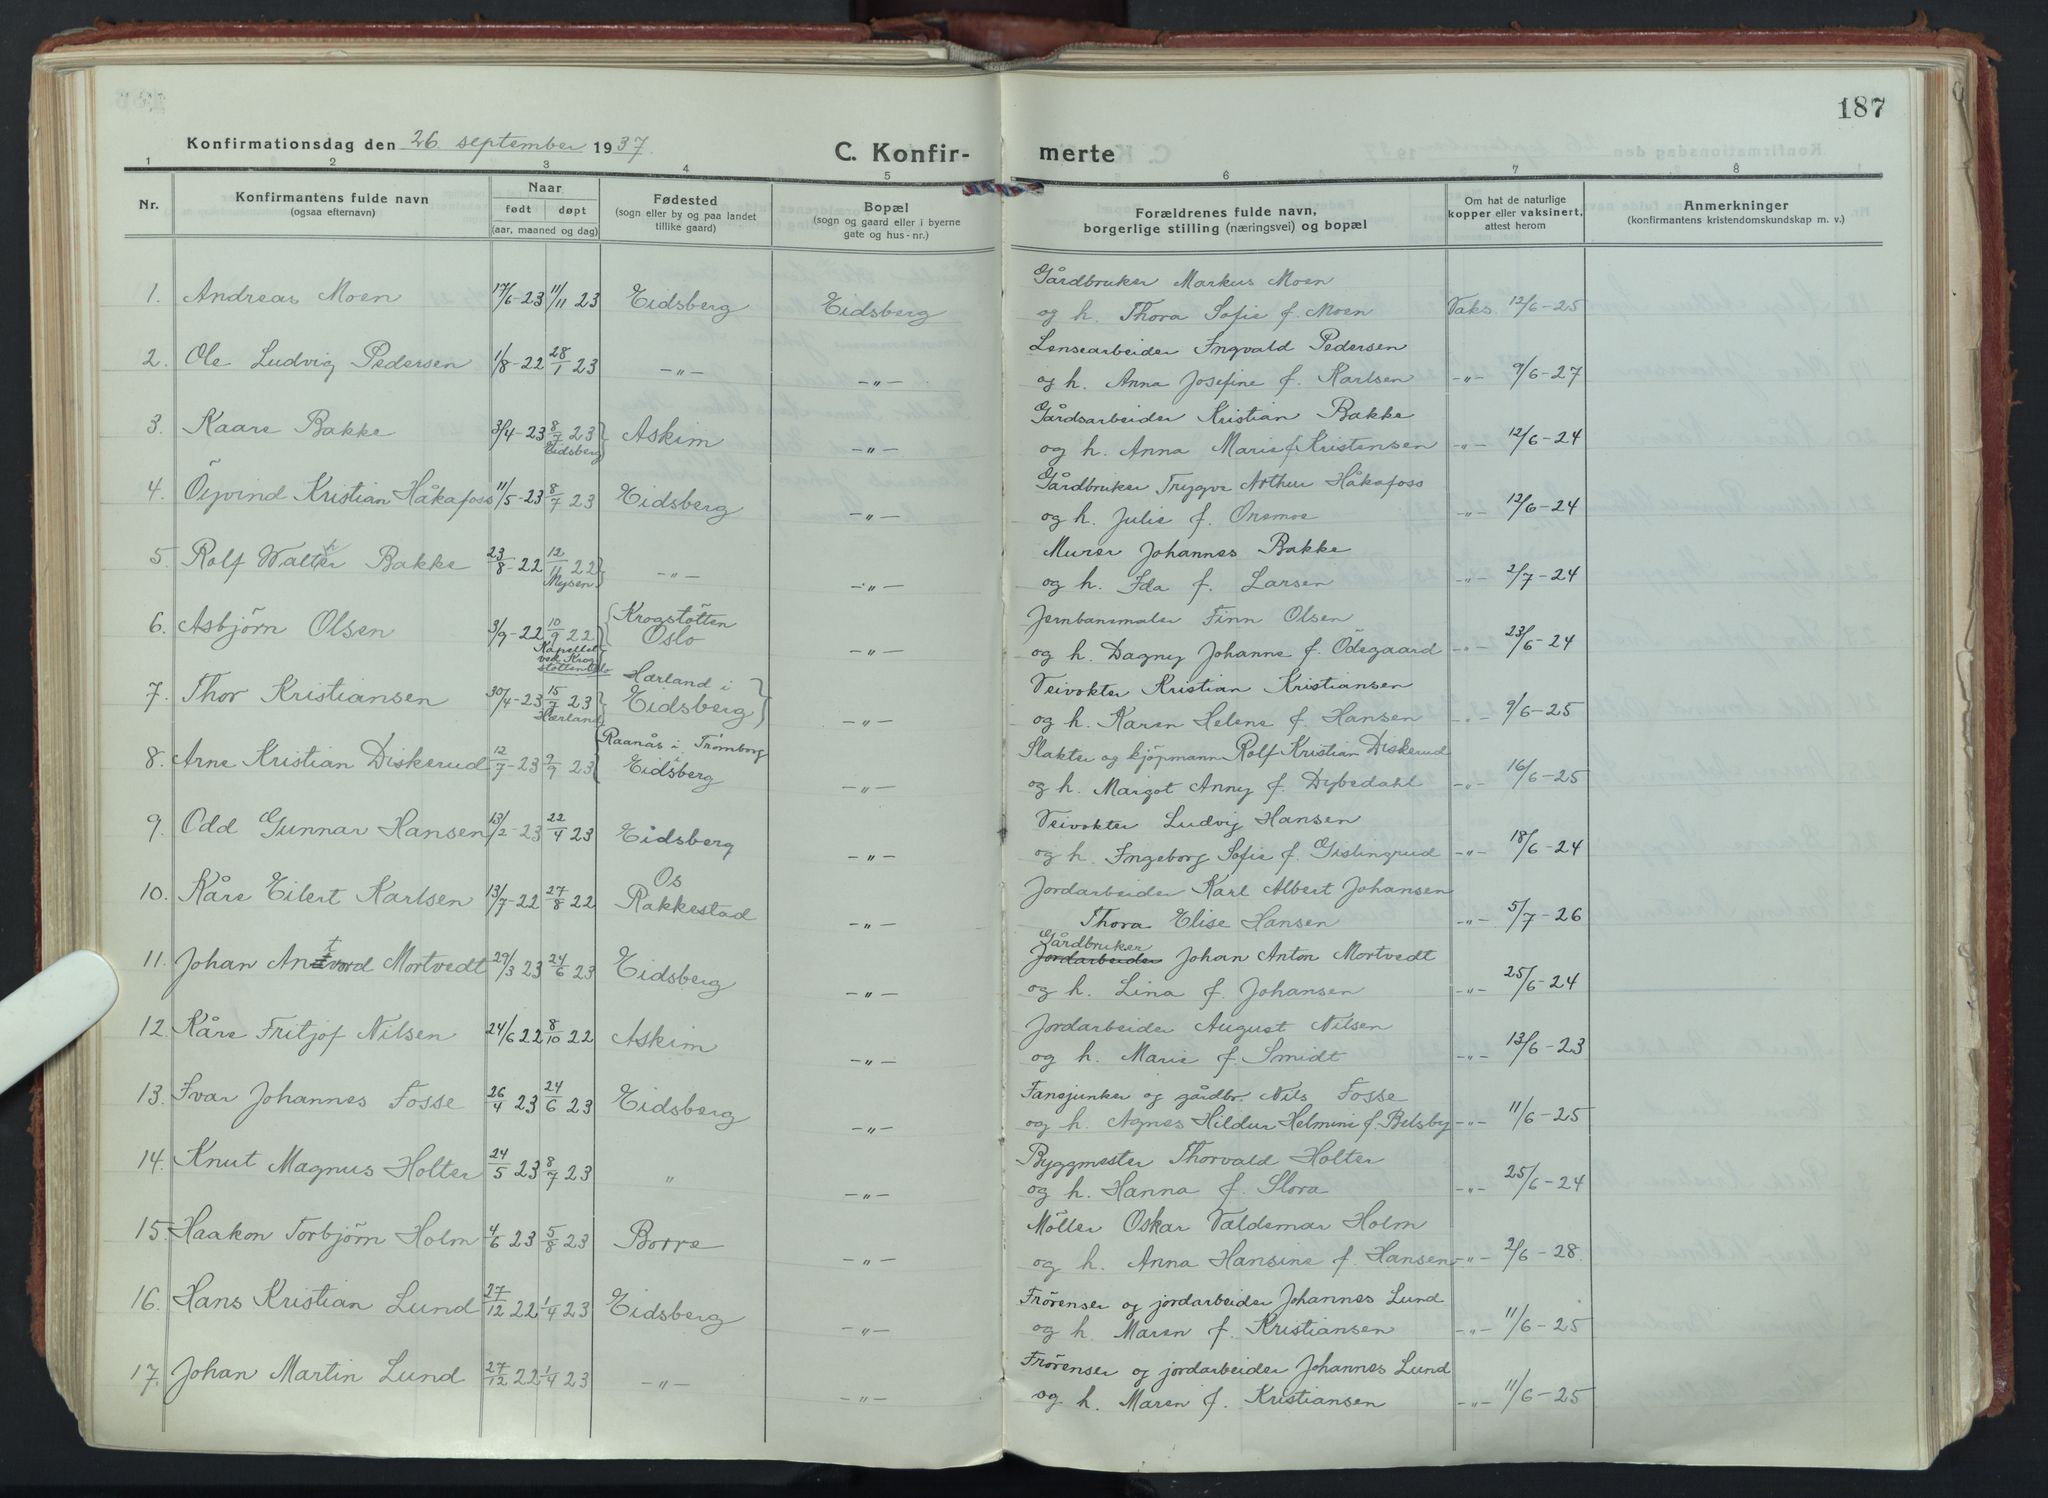 187
Konfirmationsdag den 26 september 1937.
C. Konfir- merte
1 2 3 4 5 6 7 8
Nr.
Konfirmantens fulde navn
(ogsaa efternavn)
Naar
født døpt
(aar, maaned og dag)
Fødested
(sogn eller by og paa landet
tillike gaard)
Bopæl
(sogn og gaard eller i byerne
gate og hus-nr.)
Forældrenes fulde navn,
borgerlige stilling (næringsvei) og bopæl
Om hat de naturlige
kopper eller vaksinert,
attest herom
Anmerkninger
(konfirmantens kristendomskundskap m. v.)
Gårdbruker Markus Moen
1. Andreas Moen 17/6-23 11/11 23 Eidsberg Eidsberg og h. Thora Sofie f. Moen Vaks. 12/6-25
Lensearbeider Ingvald Pedersen
2. Ole Ludvig Pedersen 1/8-22 28/1 23 -"- -"- og h. Anna Josefine f. Karlsen -"- 9/6-27
Gårdsarbeider Kristian Bakke
3. Kaare Bakke 3/4-23 8/7 23 Eidsberg } Askim -"- og h. Anna Marie f. Kristensen -"- 12/6-24
Gårdbruker Trygve Arthur Håkafoss
4. Öyvind Kristian Håkafoss 11/5-23 8/7 23 Eidsberg -"- og h. Julie f. Onsmoe -"- 12/6-24
Murer Johannes Bakke
5. Rolf Walther Bakke 23/8-22 12/11 22 Mysen } -"- -"- og h. Ida f. Larsen -"- 2/7-24
Jernbanemaler Finn Olsen
6. Asbjörn Olsen 3/9-22 10/9 22 Kapellet ved Krogstötten Oslo } { Krogstötten Oslo -"- og h. Dagny Johanne f. Ödegaard -"- 23/6-24
Veivokter Kristian Kristiansen
7. Thor Kristiansen 30/4-23 15/7 23 Hærland } Hærland i Eidsberg } -"- og h. Karen Helene f. Hansen -"- 9/6-25
Slakter og kjöpmann Rolf Kristian Diskerud
8. Arne Kristian Diskerud 12/7-23 9/9 23 { Raanås i Trømborg i Eidsberg -"- og h. Margot Anny f. Dybedahl -"- 16/6-25
Veivokter Ludvig Hansen
9. Odd Gunnar Hansen 13/2-23 22/4 23 Eidsberg -"- og h. Ingeborg Sofie f. Gislingrud -"- 18/6-24
Jordarbeider Karl Albert Johansen
10. Kåre Eilert Karlsen 13/7-22 27/8 22 Os Rakkestad -"- Thora Elise Hansen -"- 5/7-26
Gårdbruker
Jordarbeider Johan Anton Mortvedt
11. Johan Mortvedt 29/3 23 24/6 23 Eidsberg -"- og h. Lina f. Johansen -"- 25/6-24
Jordarbeider August Nilsen
12. Kåre Fritjof Nilsen 24/6 22 8/10 22 Askim -"- og h. Marie f. Smidt -"- 13/6-23
Fanejunker og gårdbr. Nils Fosse
13. Ivar Johannes Fosse 26/4 23 24/6 23 Eidsberg -"- og h. Agnes Hildur Helmine f. Belsby -"- 11/6-25
Byggmester Thorvald Holter
14. Knut Magnus Holter 24/5 23 8/7 23 " -"- og h. Hanna f. Slora -"- 25/6-24
Möller Oskar Valdemar Holm
15. Haakon Torbjörn Holm 4/6 23 5/8 23 Borre -"- og h. Anna Hansine f. Hansen -"- 2/6-28.
Frörenser og jordarbeider Johannes Lund
16. Hans Kristian Lund 27/12 22 1/4 23 Eidsberg -"- og h. Maren f. Kristiansen -"- 11/6-25
Frörenser og jordarbeider Johannes Lund
17. Johan Martin Lund 27/12 22 1/4 23 -"- -"- og h. Maren f. Kristiansen -"- 11/6-25